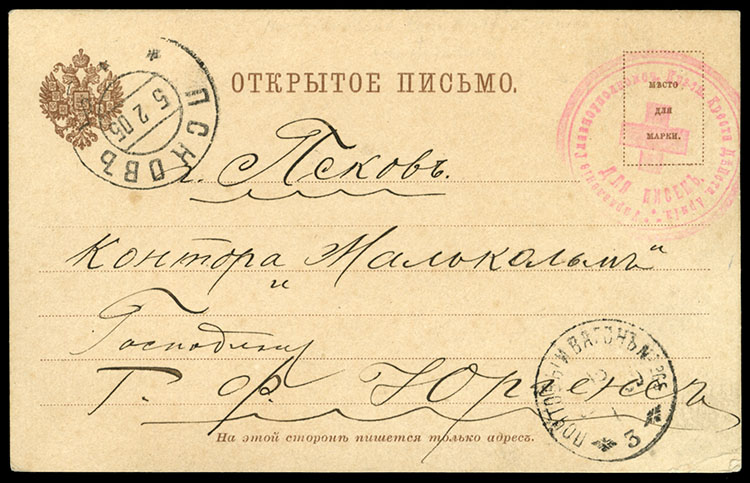 ОТКРЫТОЕ ПИСЬМО.
МѢСТО
ДЛЯ
МАРКИ.
ДЛЯ ПИСЕМЪ.
ПСКОВЪ
5 2 05
г. Псковъ.
Контора „Малокольмъ“
Господину
Г. Ф. Юргенсъ
ПОЧТОВЫЙ ВАГОНЪ №
3
На этой сторонѣ пишется только адресъ.